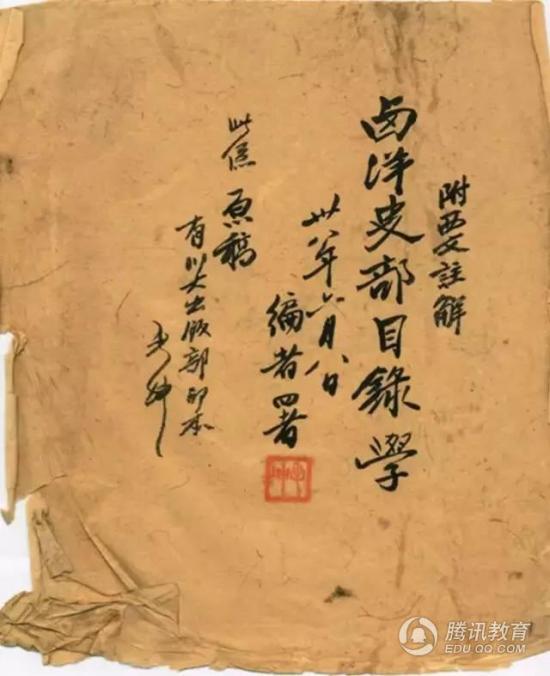 附西文註解
西洋史部目錄學
卅八年六月八日
編者署
此係原稿
有川大出版部印本
腾讯教育
EDU.QQ.COM